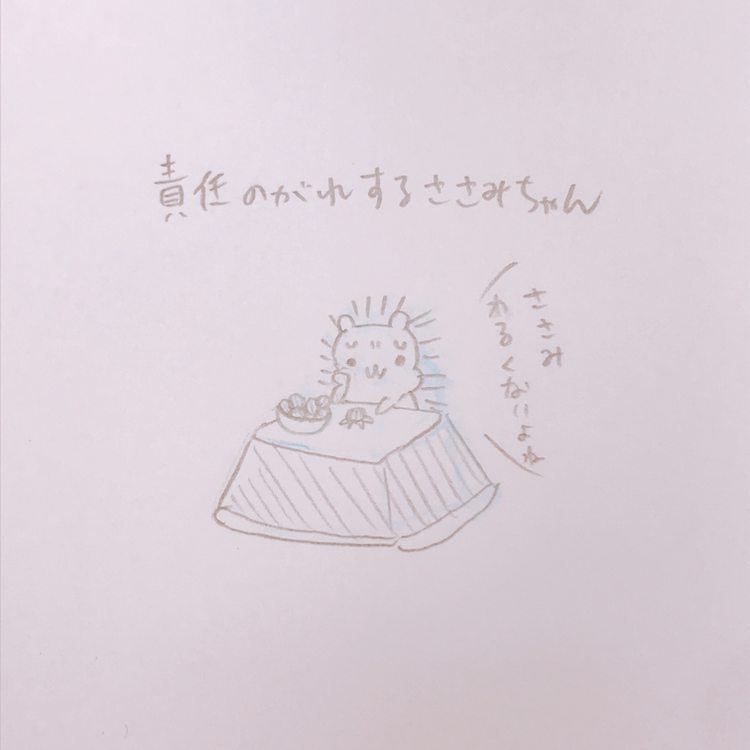 責任のがれするささみちゃん
ささみ
わるくないよね